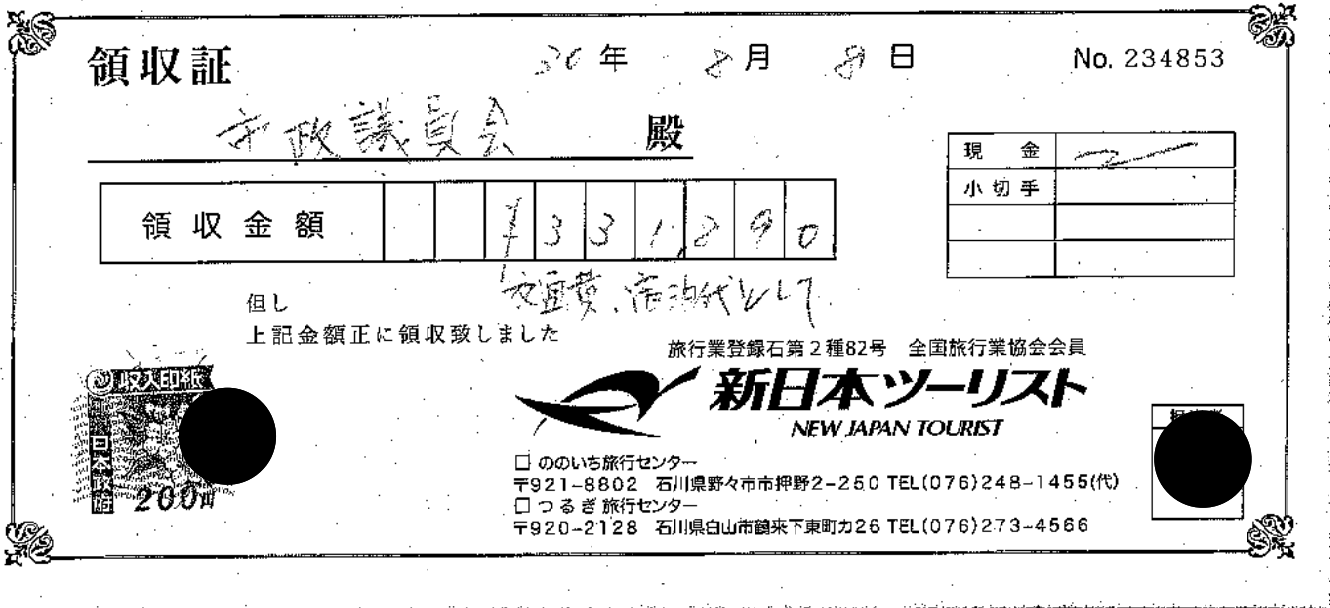 領収証 30年 8月 8日 No. 234853
市政議員会 殿
現金
小切手
領収金額 ¥331,890
交通費、宿泊代として
但し
上記金額正に領収致しました
旅行業登録石第2種82号 全国旅行業協会会員
収入印紙
新日本ツーリスト
NEW JAPAN TOURIST
日本政府
200円
□ ののいち旅行センター
〒921-8802 石川県野々市市押野2-250 TEL(076)248-1455(代)
□ つるぎ旅行センター
〒920-2128 石川県白山市鶴来下東町カ26 TEL(076)273-4566